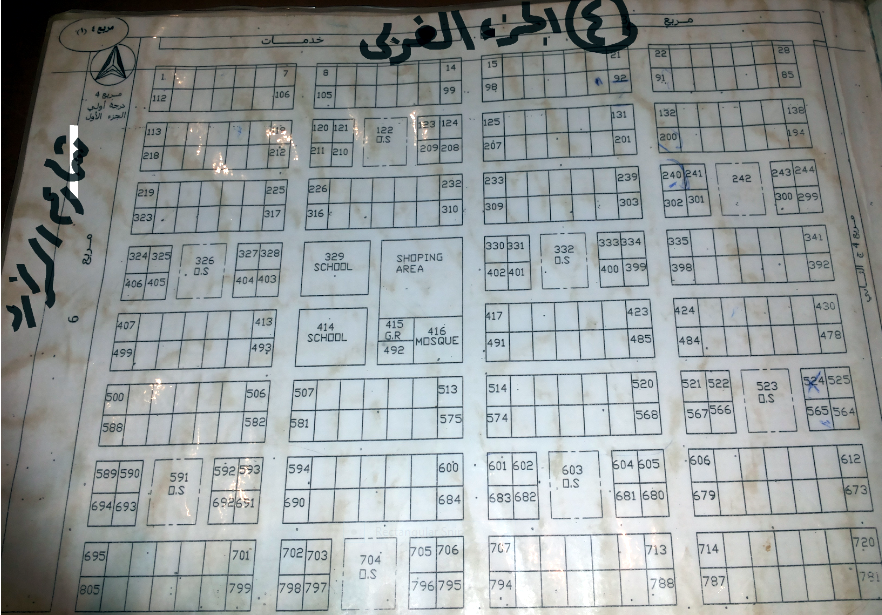 مربع ٤
٤ الجزء الغربي
مربع
خدمات
مربع ٤
درجة أولى
الجزء الأول
شارع
مربع
6
1 7 8 14 15 21 22 28
112 106 105 99 98 92 91 85
113 119 120 121 122 O.S 123 124 125 131 132 138
218 212 211 210 209 208 207 201 200 194
219 225 226 232 233 239 240 241 242 243 244
323 317 316 310 309 303 302 301 300 299
324 325 326 O.S 327 328 329 SCHOOL SHOPING AREA 330 331 332 O.S 333 334 335 341
406 405 404 403 402 401 400 399 398 392
407 413 414 SCHOOL 415 G.R 416 MOSQUE 417 423 424 430
499 493 492 491 485 484 478
500 506 507 513 514 520 521 522 523 O.S 524 525
588 582 581 575 574 568 567 566 565 564
589 590 591 O.S 592 593 594 600 601 602 603 O.S 604 605 606 612
694 693 692 691 690 684 683 682 681 680 679 673
695 701 702 703 704 O.S 705 706 707 713 714 720
805 799 798 797 796 795 794 788 787 781